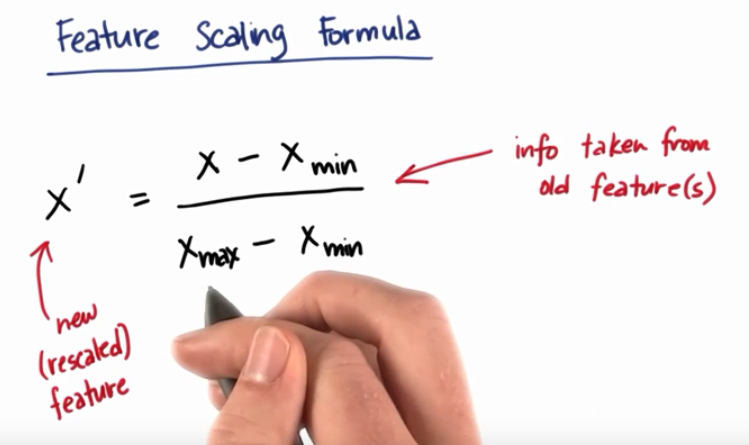 Feature Scaling Formula
x' = (x - x min) / (x max - x min)
info taken from
old feature(s)
new
(rescaled)
feature